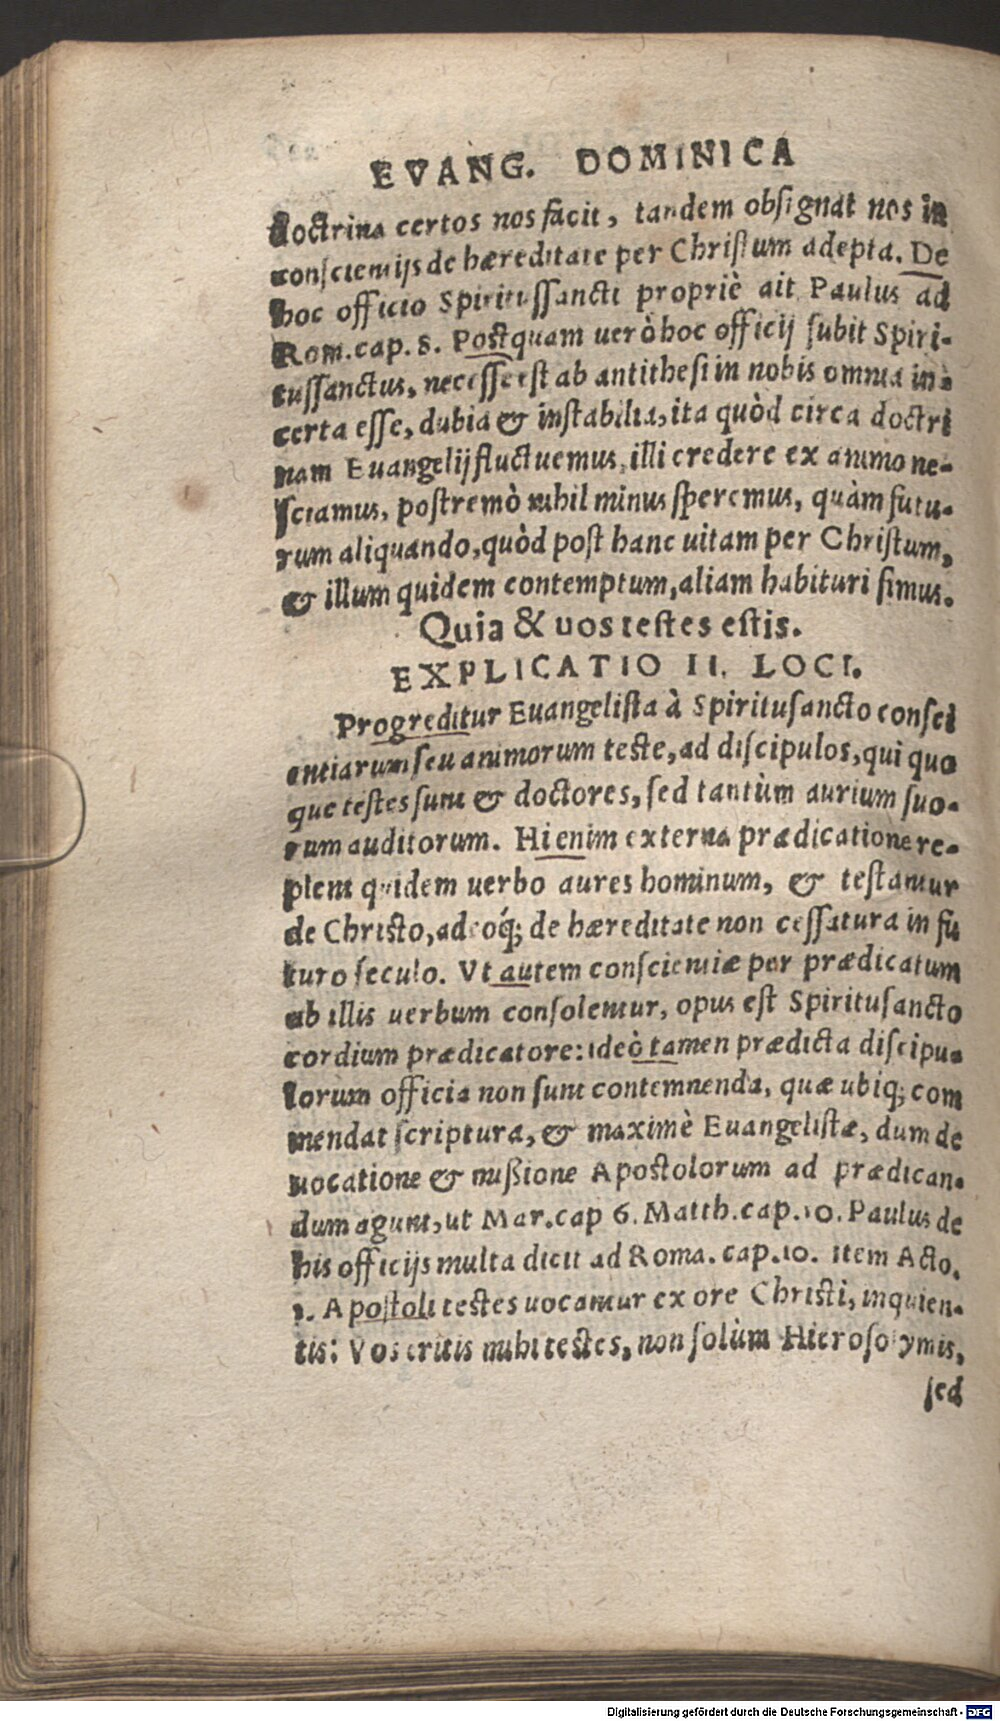 EVANG. DOMINICA
doctrina certos nos facit, tandem obsignat nos in
conscientijs de hæreditate per Christum adepta. De
hoc officio Spiritussancti propriè ait Paulus ad
Rom. cap. 8. Postquam uerò hoc officij subit Spiri-
tussanctus, necesse est ab antithesi in nobis omnia in-
certa esse, dubia & instabilia, ita quòd circa doctri
nam Euangelij fluctuemus, illi credere ex animo ne-
sciamus, postremò nihil minus speremus, quàm futu-
rum aliquando, quòd post hanc uitam per Christum,
& illum quidem contemptum, aliam habituri simus.
Quia & uos testes estis.
EXPLICATIO II. LOCI.
Progreditur Euangelista à Spiritusancto consci
entiarum seu animorum teste, ad discipulos, qui quo
que testes sunt & doctores, sed tantùm aurium suo-
rum auditorum. Hi enim externa prædicatione re-
plent quidem uerbo aures hominum, & testantur
de Christo, adeoq́; de hæreditate non cessatura in fu
turo seculo. Vt autem conscientiæ per prædicatum
ab illis uerbum consolentur, opus est Spiritusancto
cordium prædicatore: ideò tamen prædicta discipu-
lorum officia non sunt contemnenda, quæ ubiq; com
mendat scriptura, & maximè Euangelistæ, dum de
uocatione & missione Apostolorum ad prædican-
dum agunt, ut Mar. cap 6. Matth. cap. 10. Paulus de
his officijs multa dicit ad Roma. cap. 10. item Acto.
1. Apostoli testes uocantur ex ore Christi, inquien-
tis: Vos eritis mihi testes, non solùm Hierosolymis,
sed
Digitalisierung gefördert durch die Deutsche Forschungsgemeinschaft - DFG